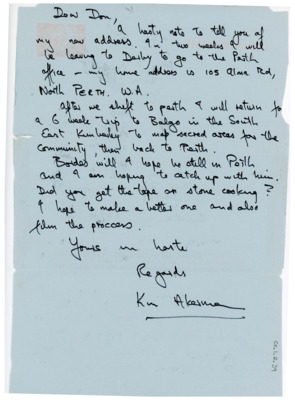 Dear Don,
A hasty note to tell you of
my new address. In two weeks I will
be leaving to Derby to go to the Perth
office – my home address is 105 Alma Rd,
North PERTH. W.A.
After we shift to perth I will return for
a 6 week trip to Balgo in the South
East Kimberley to map sacred areas for the
community, then back to Perth.
Bordes will I hope be still in Perth
and I am hoping to catch up with him.
Did you get the tape on stone cooking?
I hope to make a better one and also
film the proccess.
Yours in haste
Regards
Kim Akerman